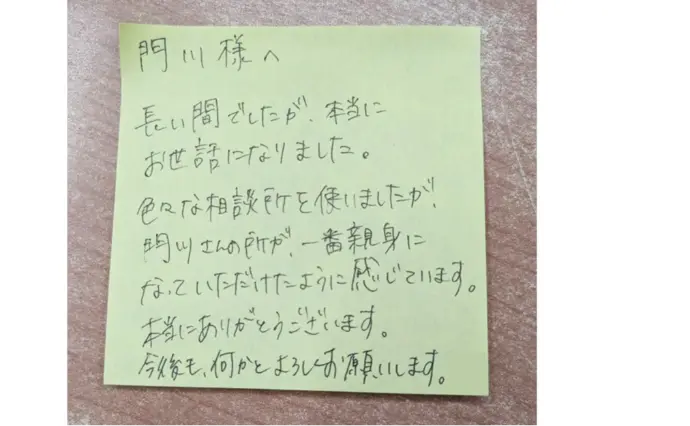 門川様へ
長い間でしたが、本当に
お世話になりました。
色々な相談所を使いましたが、
門川さんの所が、一番親身に
なっていただけたように感じています。
本当にありがとうございます。
今後も、何かとよろしくお願いします。